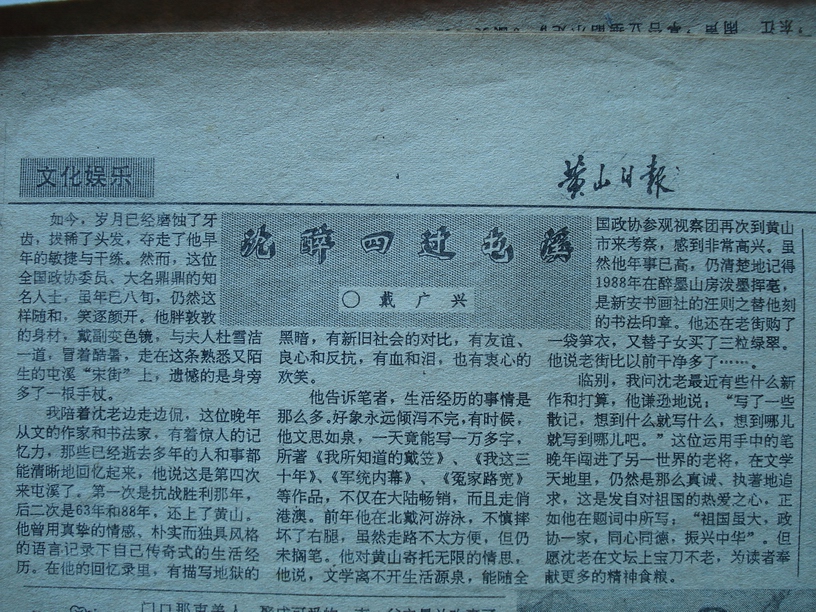 文化娱乐
黄山日报
沈醉四过屯溪
○ 戴广兴
如今，岁月已经磨蚀了牙
齿，拔稀了头发，夺走了他早
年的敏捷与干练。然而，这位
全国政协委员、大名鼎鼎的知
名人士，虽年已八旬，仍然这
样随和，笑逐颜开。他胖敦敦
的身材，戴副变色镜，与夫人杜雪洁
一道，冒着酷暑，走在这条熟悉又陌
生的屯溪“宋街”上，遗憾的是身旁
多了一根手杖。
我陪着沈老边走边侃，这位晚年
从文的作家和书法家，有着惊人的记
忆力，那些已经逝去多年的人和事都
能清晰地回忆起来，他说这是第四次
来屯溪了。第一次是抗战胜利那年，
后二次是63年和88年，还上了黄山。
他曾用真挚的情感，朴实而独具风格
的语言记录下自己传奇式的生活经
历。在他的回忆录里，有描写地狱的
黑暗，有新旧社会的对比，有友谊、
良心和反抗，有血和泪，也有衷心的
欢笑。
他告诉笔者，生活经历的事情是
那么多。好象永远倾泻不完，有时候，
他文思如泉，一天竟能写一万多字，
所著《我所知道的戴笠》、《我这三
十年》、《军统内幕》、《冤家路宽》
等作品，不仅在大陆畅销，而且走俏
港澳。前年他在北戴河游泳，不慎摔
坏了右腿，虽然走路不太方便，但仍
未搁笔。他对黄山寄托无限的情思，
他说，文学离不开生活源泉，能随全
国政协参观视察团再次到黄山
市来考察，感到非常高兴。虽
然他年事已高，仍清楚地记得
1988年在醉墨山房泼墨挥毫，
是新安书画社的汪则之替他刻
的书法印章。他还在老街购了
一袋笋衣，又替子女买了三粒绿翠。
他说老街比以前干净多了……。
临别，我问沈老最近有些什么新
作和打算，他谦逊地说；“写了一些
散记，想到什么就写什么，想到哪儿
就写到哪儿吧。”这位运用手中的笔
晚年闯进了另一世界的老将，在文学
天地里，仍然是那么真诚、执著地追
求，这是发自对祖国的热爱之心，正
如他在题词中所写；“祖国虽大，政
协一家，同心同德，振兴中华”。但
愿沈老在文坛上宝刀不老，为读者奉
献更多的精神食粮。